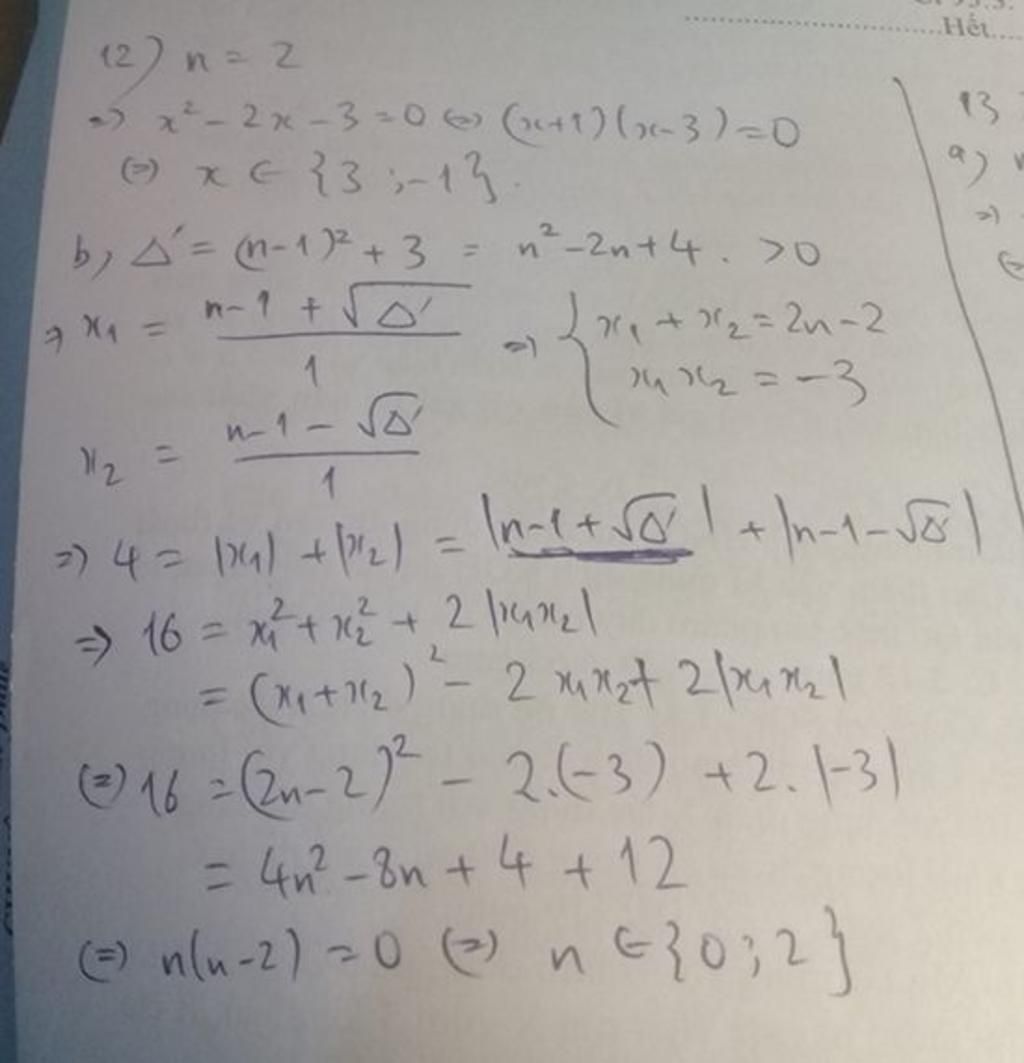 Hết
12) n = 2
=> x² - 2x - 3 = 0 <=> (x+1)(x-3) = 0
(=) x ∈ {3 ; -1}.
b, Δ' = (n-1)² + 3 = n² - 2n + 4 . > 0
=> x₁ = (n-1 + √Δ')/1 => { x₁ + x₂ = 2n - 2
x₁ x₂ = -3
x₂ = (n-1 - √Δ')/1
=> 4 = |x₁| + |x₂| = |n-1 + √Δ'| + |n-1-√Δ'|
=> 16 = x₁² + x₂² + 2|x₁x₂|
= (x₁+x₂)² - 2 x₁x₂ + 2|x₁x₂|
(=) 16 = (2n-2)² - 2.(-3) + 2.|-3|
= 4n² - 8n + 4 + 12
(=) n(n-2) = 0 (=) n ∈ {0 ; 2}
13
a)
=>